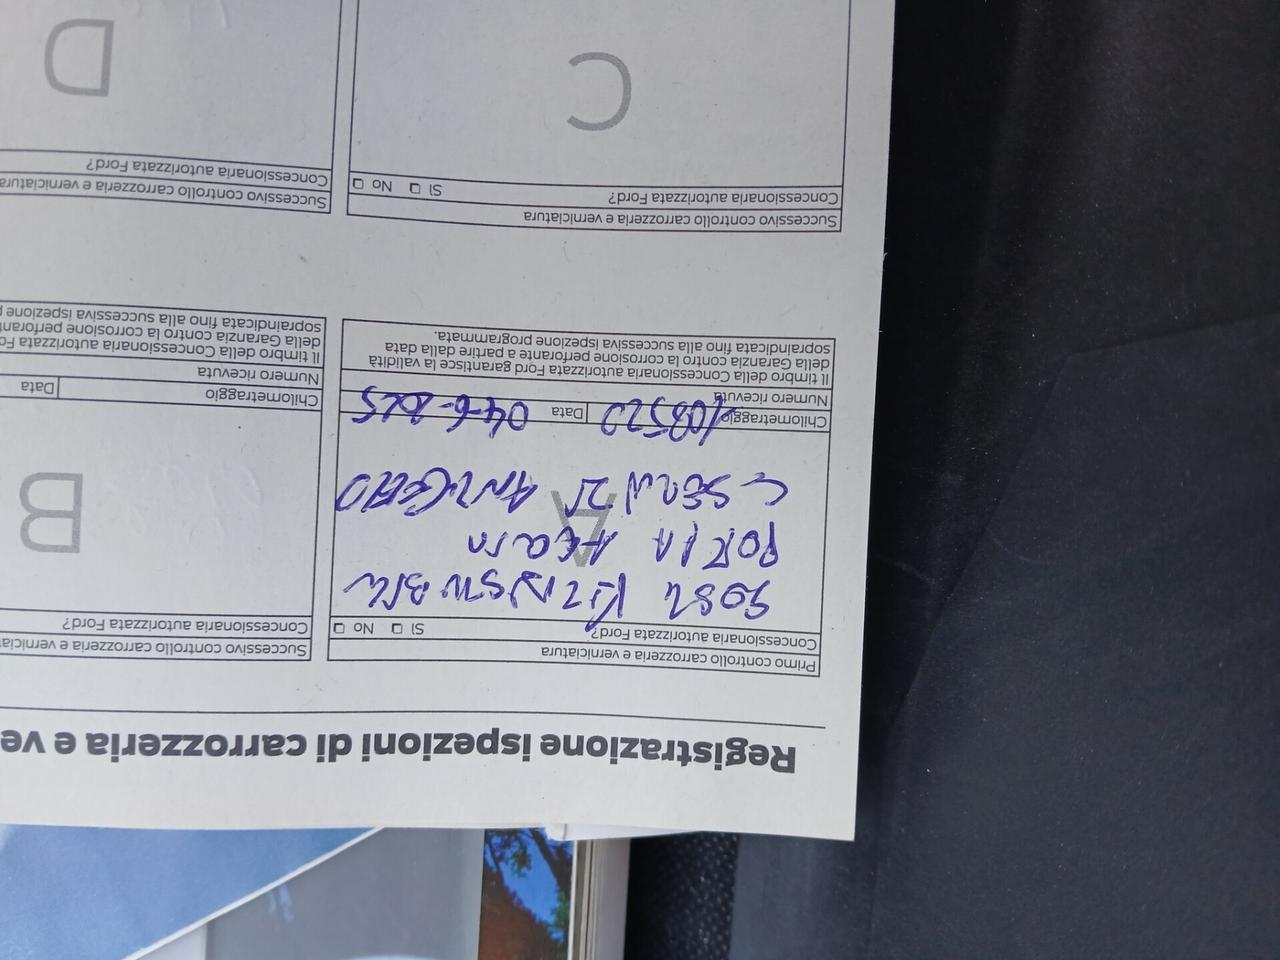 Registrazione ispezioni di carrozzeria e ve
Primo controllo carrozzeria e verniciatura
Concessionaria autorizzata Ford? Sì No
A
Chilometraggio 103520 Data 04-6-2025
Numero ricevuta
Il timbro della Concessionaria autorizzata Ford garantisce la validità
della Garanzia contro la corrosione perforante a partire dalla data
sopraindicata fino alla successiva ispezione programmata.
Successivo controllo carrozzeria e verniciat
Concessionaria autorizzata Ford?
B
Chilometraggio Data
Numero ricevuta
Il timbro della Concessionaria autorizzata Fo
della Garanzia contro la corrosione perforant
sopraindicata fino alla successiva ispezione p
Successivo controllo carrozzeria e verniciatura
Concessionaria autorizzata Ford? Sì No
C
Successivo controllo carrozzeria e verniciatura
Concessionaria autorizzata Ford?
D